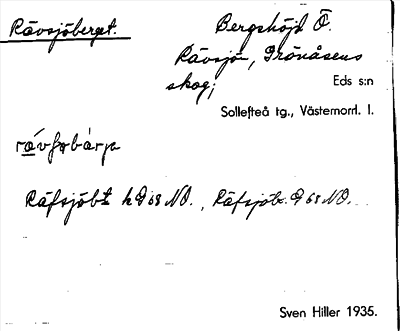 Rävsjöberget.
Bergshöjd Ö.
Rävsjön, Grönåsens
skog;
Eds s:n
Sollefteå tg., Västernorrl. l.
Räfsjöbt h Q 68 NO., Räfsjöb. Q 68 NO.
Sven Hiller 1935.